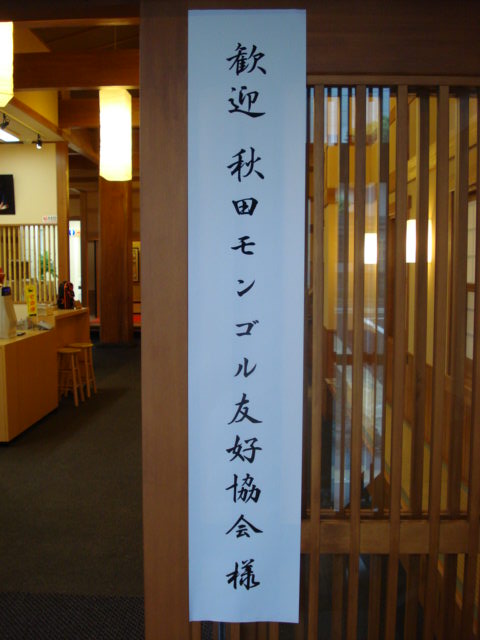 歓迎 秋田モンゴル友好協会様